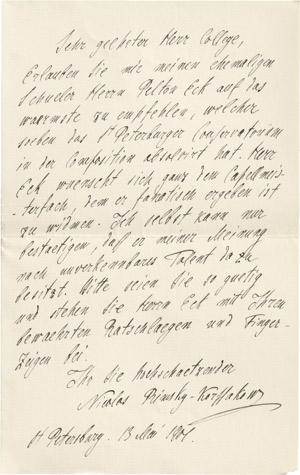 Sehr geehrter Herr College,
Erlauben Sie mir meinen ehemaligen
Schueler Herrn Pelton Eck auf das
waermste zu empfehlen, welcher
soeben das St Petersburger Conservatorium
in der Composition absolvirt hat. Herr
Eck wuenscht sich ganz dem Capellmeis-
terfach, dem er fanatisch ergeben ist
zu widmen. Ich selbst kann nur
bestaetigen, daß er meiner Meinung
nach unverkennbares Talent dazu
besitzt. Bitte seien Sie so guetig
und stehen Sie Herrn Eck mit Ihren
bewaehrten Ratschlaegen und Finger-
zeigen bei.
Ihr Sie hochschaetzender
Nicolas Rimsky-Korssakow
St Petersburg. 13 Mai 1901.